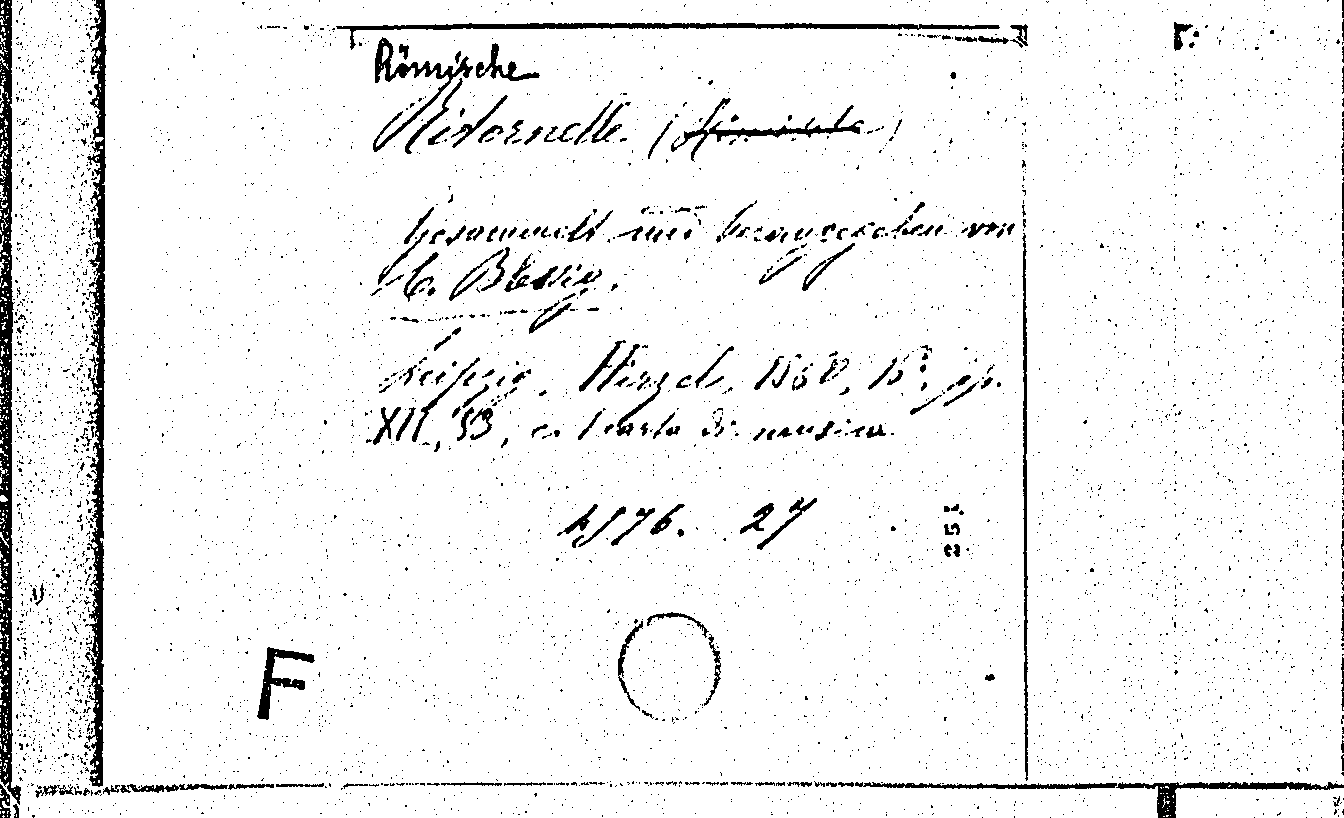 Römische
Ritornelle (Römische)
Gesammelt und herausgegeben von
C. Blessig.
Leipzig, Hirzel, 1860, 15°, pp.
XII, 53, e 1 carta di musica
1576. 27
251
F